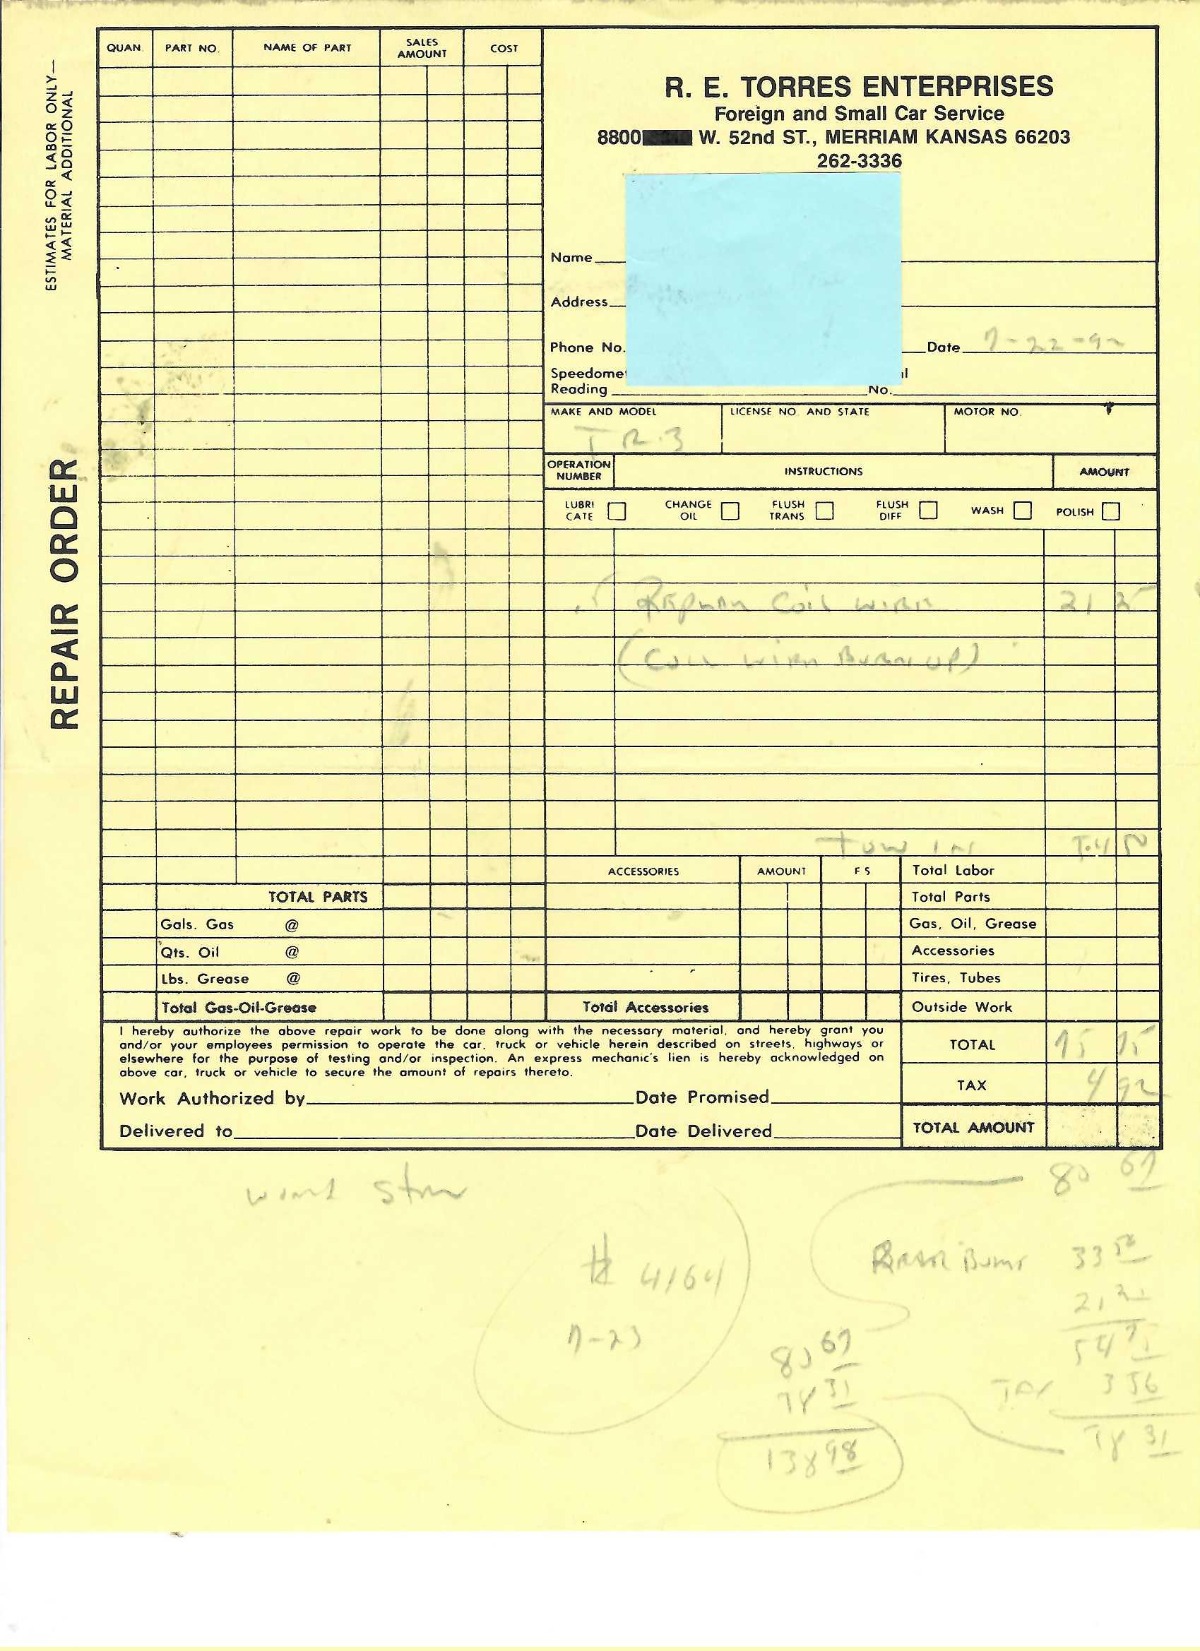 QUAN. PART NO. NAME OF PART SALES AMOUNT COST
ESTIMATES FOR LABOR ONLY—
MATERIAL ADDITIONAL
REPAIR ORDER
R. E. TORRES ENTERPRISES
Foreign and Small Car Service
8800 W. 52nd ST., MERRIAM KANSAS 66203
262-3336
Name
Address
Phone No. Date 7-22-92
Reading No.
MAKE AND MODEL LICENSE NO. AND STATE MOTOR NO.
TR3
OPERATION NUMBER INSTRUCTIONS AMOUNT
LUBRI CATE CHANGE OIL FLUSH TRANS FLUSH DIFF WASH POLISH
Coil wire 21
(Coil wire Burn up)
Tow in
ACCESSORIES AMOUNT F S Total Labor
TOTAL PARTS Total Parts
Gals. Gas @ Gas, Oil, Grease
Qts. Oil @ Accessories
Lbs. Grease @ Tires, Tubes
Total Gas-Oil-Grease Total Accessories Outside Work
I hereby authorize the above repair work to be done along with the necessary material, and hereby grant you
and/or your employees permission to operate the car, truck or vehicle herein described on streets, highways or
elsewhere for the purpose of testing and/or inspection. An express mechanic's lien is hereby acknowledged on
above car, truck or vehicle to secure the amount of repairs thereto.
TOTAL 75 75
TAX 4 92
Work Authorized by Date Promised
Delivered to Date Delivered
TOTAL AMOUNT
80 67
# 4164
7-23
33 50
54 75
Tax 3 56
58 31
80 67
58 31
138 98